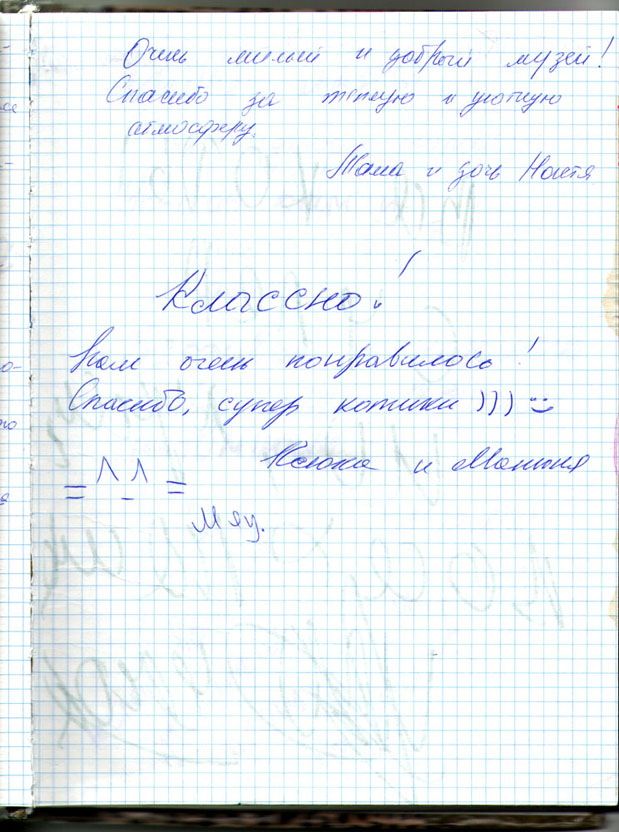 Очень милый и добрый музей!
Спасибо за теплую и уютную
атмосферу.
Мама и дочь Настя
Классно!
Нам очень понравилось!
Спасибо, супер котики )))
Ксюха и Маныня
Мяу.